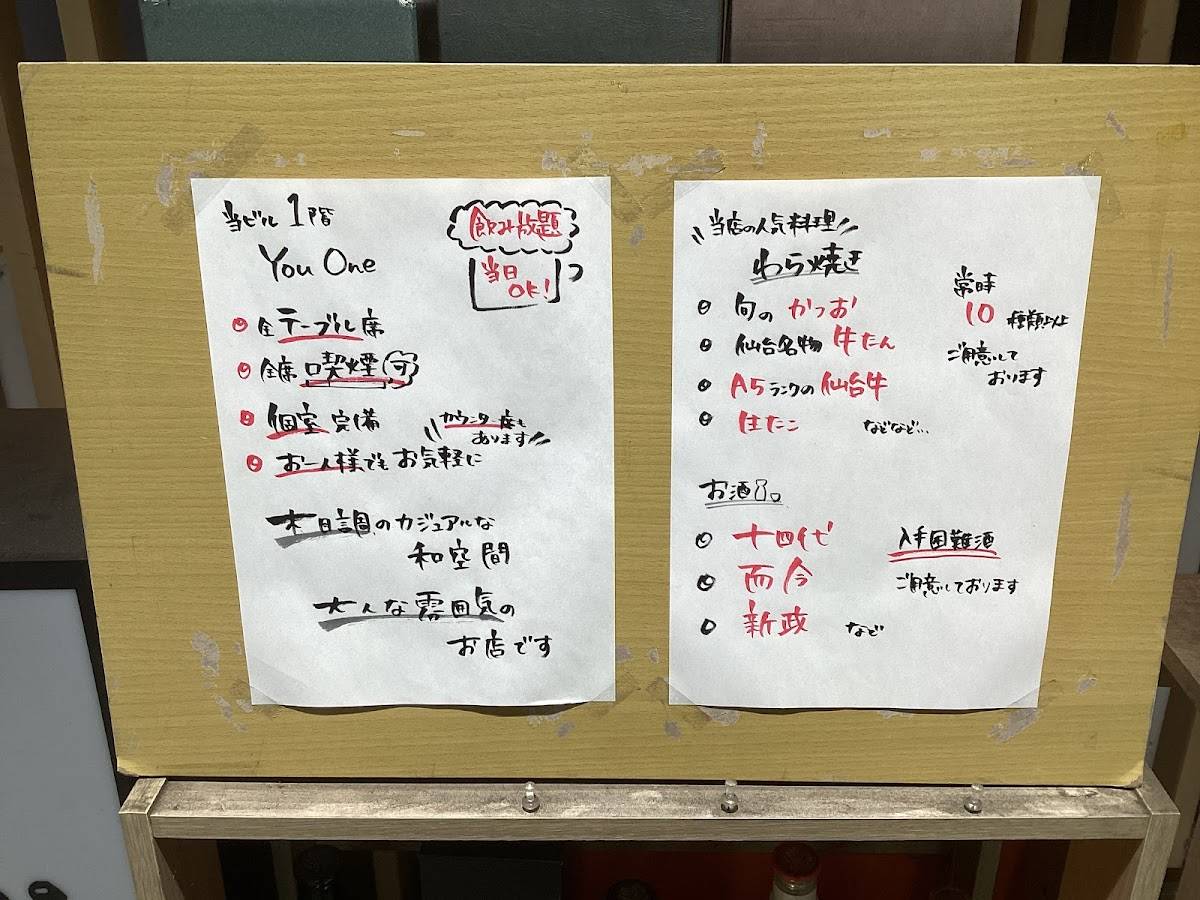 当ビル 1階
You One
飲み放題
当日
OK!
全テーブル席
全席喫煙可
個室完備
カウンター席も
あります
お一人様でもお気軽に
木目調のカジュアルな
和空間
大人な雰囲気の
お店です
当店の人気料理
わら焼き
旬のかつお
仙台名物 牛たん
A5ランクの仙台牛
生たこ
などなど...
常時
10種類以上
ご用意して
おります
お酒
十四代
而今
新政 など
入手困難酒
ご用意しております